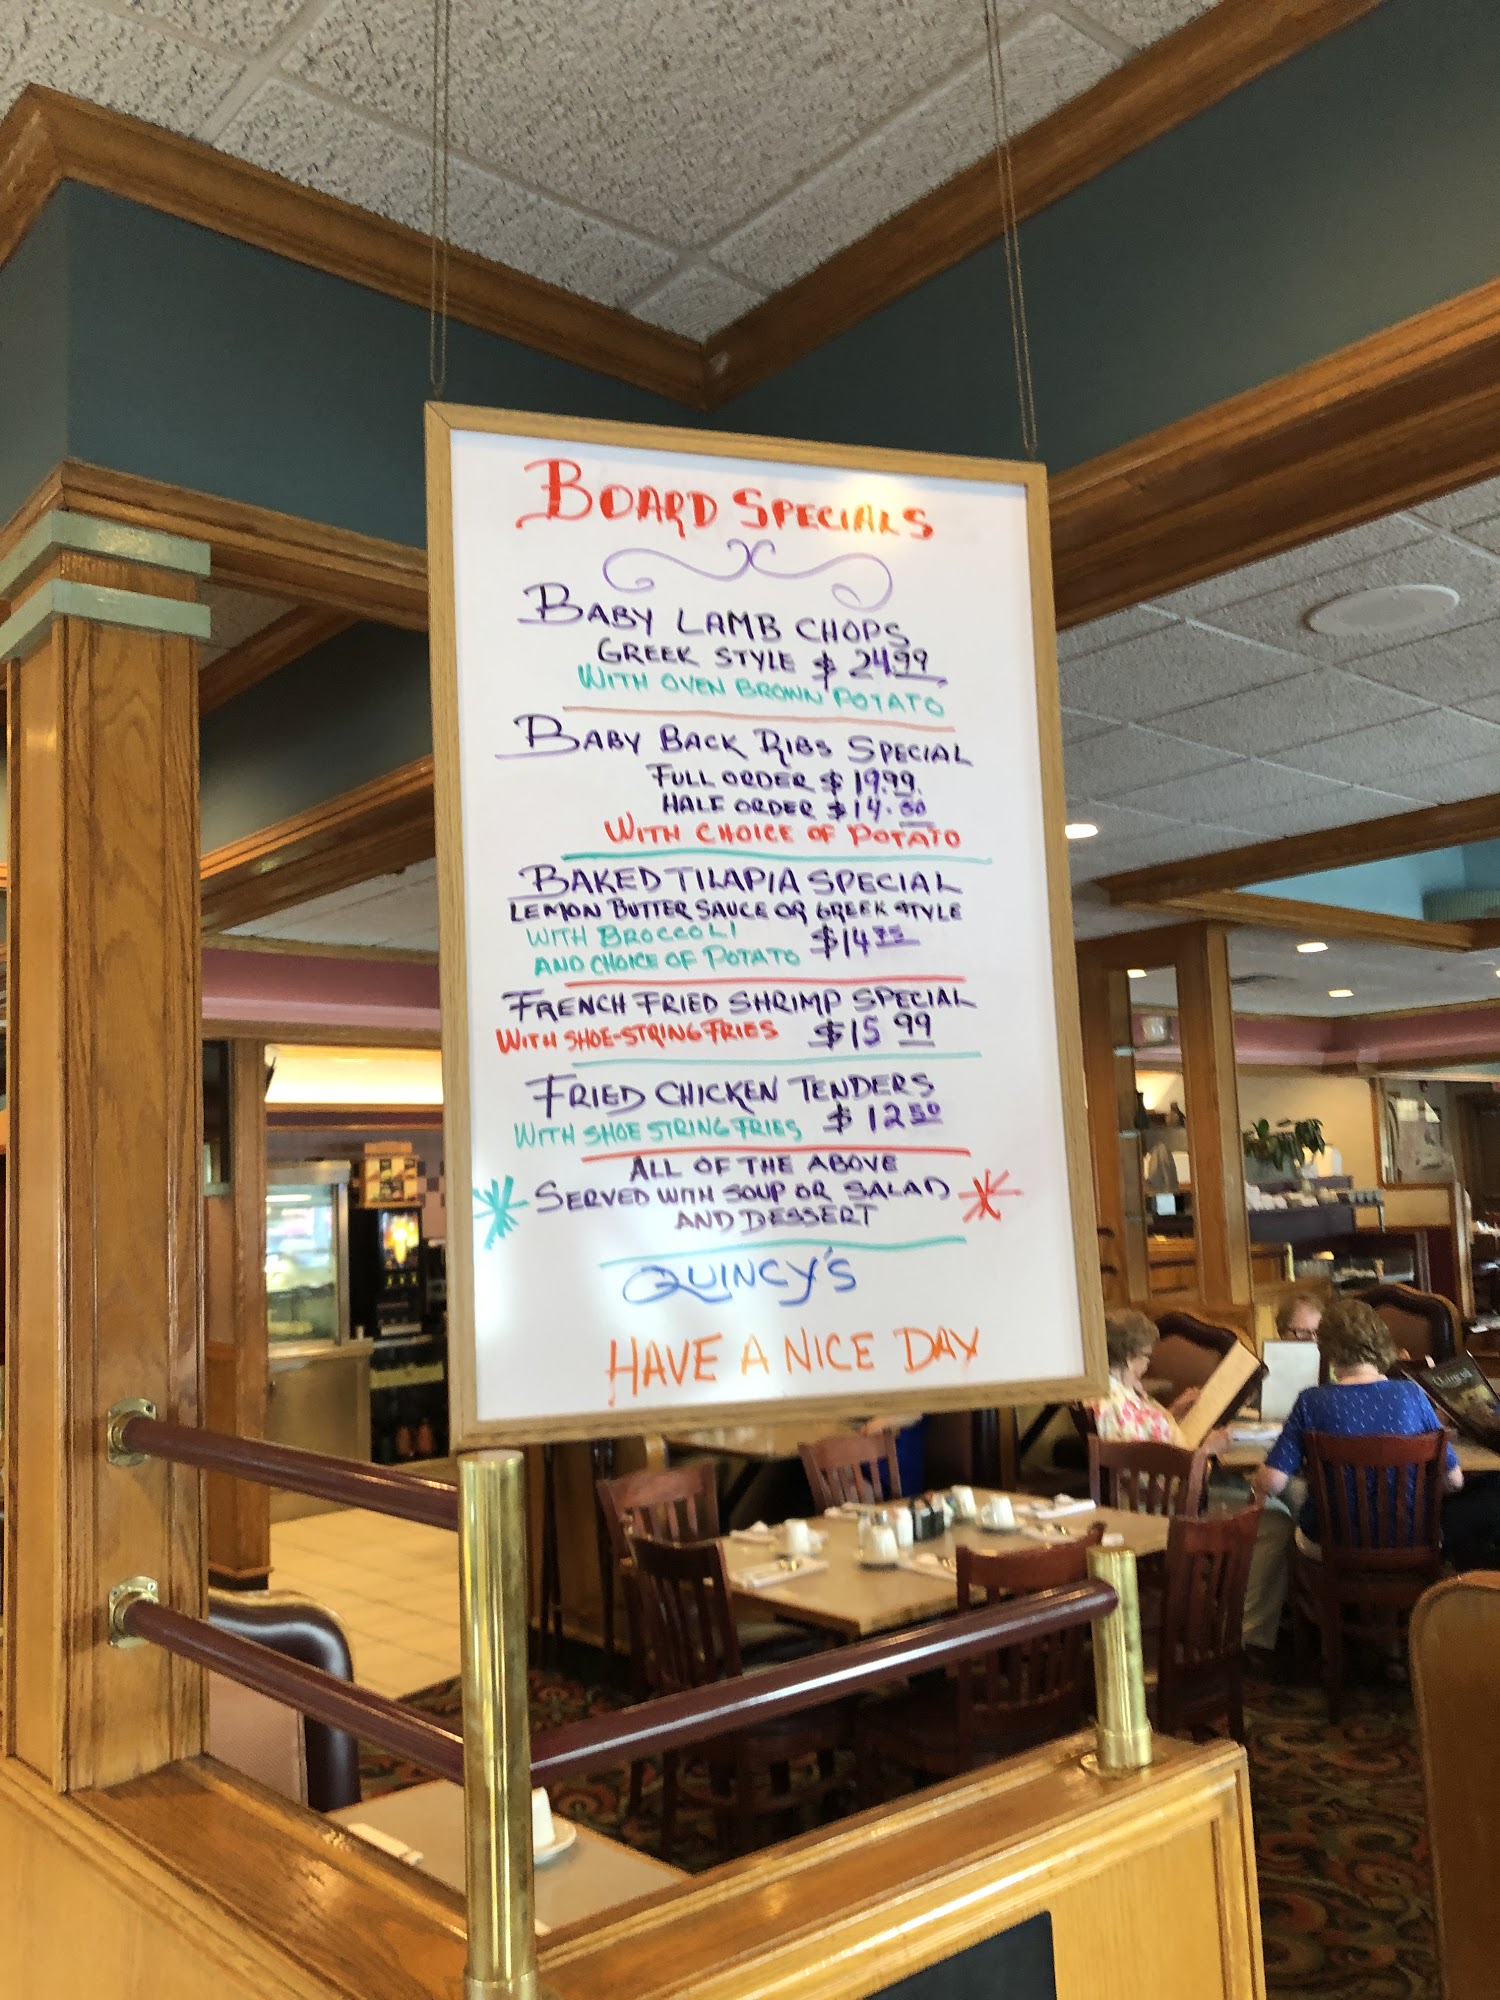 BOARD SPECIALS
BABY LAMB CHOPS
GREEK STYLE $ 24.99
WITH OVEN BROWN POTATO
BABY BACK RIBS SPECIAL
FULL ORDER $ 19.99.
HALF ORDER $14.50
WITH CHOICE OF POTATO
BAKED TILAPIA SPECIAL
LEMON BUTTER SAUCE OR GREEK STYLE
WITH BROCCOLI
AND CHOICE OF POTATO $14 95
FRENCH FRIED SHRIMP SPECIAL
WITH SHOE-STRING FRIES $15 99
FRIED CHICKEN TENDERS
WITH SHOE STRING FRIES $ 12 50
ALL OF THE ABOVE
SERVED WITH SOUP OR SALAD
AND DESSERT
QUINCY'S
HAVE A NICE DAY